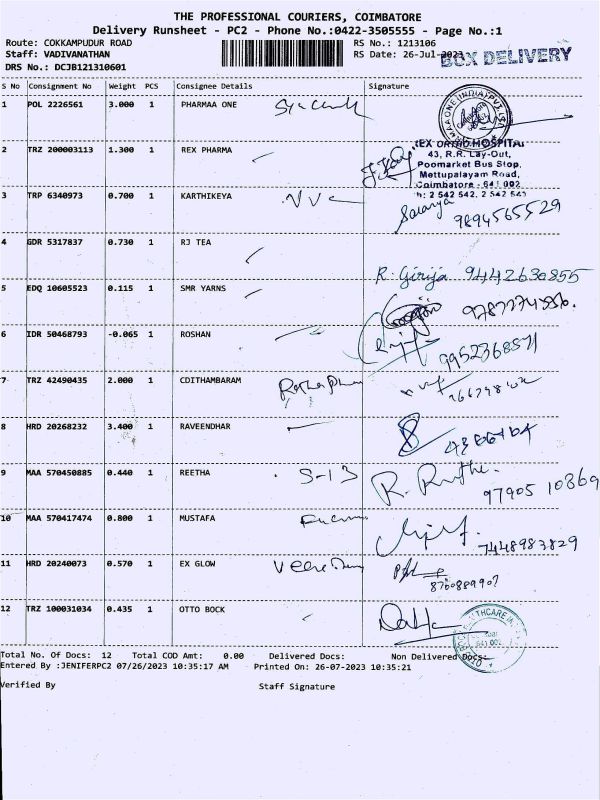 THE PROFESSIONAL COURIERS, COIMBATORE
Delivery Runsheet - PC2 - Phone No.:0422-3505555 - Page No.:1
Route: COKKAMPUDUR ROAD RS No.: 1213106
Staff: VADIVANATHAN RS Date: 26-Jul-2023 BOX DELIVERY
DRS No.: DCJB121310601
S No Consignment No Weight PCS Consignee Details Signature
1 POL 2226561 3.000 1 PHARMAA ONE
2 TRZ 200003113 1.300 1 REX PHARMA
REX ORTHO HOSPITAL
43, R.R. Lay-Out,
Poomarket Bus Stop,
Mettupalayam Road,
Coimbatore - 641 002
3 TRP 6340973 0.700 1 KARTHIKEYA
Saranya 9894565529
4 GDR 5317837 0.730 1 RJ TEA
R. Girija 9442636855
5 EDQ 10605523 0.115 1 SMR YARNS
6 IDR 50468793 -0.065 1 ROSHAN
9952368571
7 TRZ 42490435 2.000 1 CDITHAMBARAM
8 HRD 20268232 3.400 1 RAVEENDHAR
9 MAA 570450885 0.440 1 REETHA S-13
97905 10869
10 MAA 570417474 0.800 1 MUSTAFA
7448983829
11 HRD 20240073 0.570 1 EX GLOW
8760889907
12 TRZ 100031034 0.435 1 OTTO BOCK
Total No. Of Docs: 12 Total COD Amt: 0.00 Delivered Docs: Non Delivered Docs:
Entered By :JENIFERPC2 07/26/2023 10:35:17 AM Printed On: 26-07-2023 10:35:21
Verified By Staff Signature